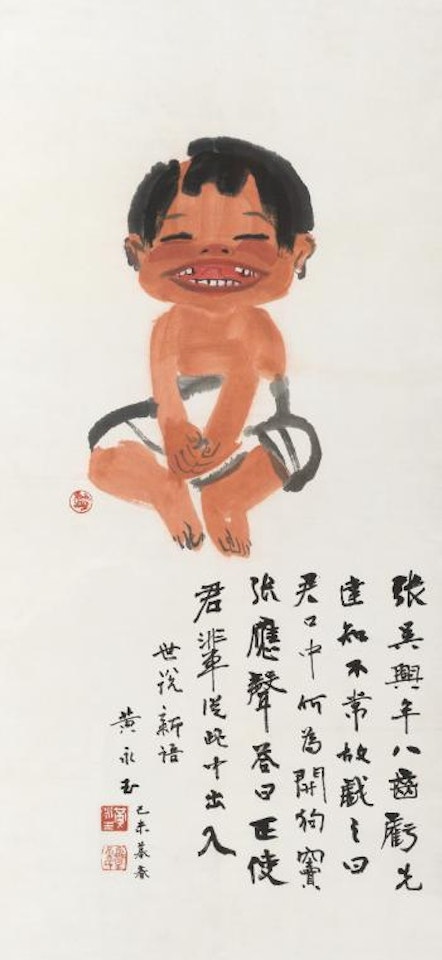 張吳興年八齒虧先
達知不常故戲之曰
君口中何為開狗竇
張應聲答曰正使
君輩從此中出入
世說新語
黃永玉
己未暮春